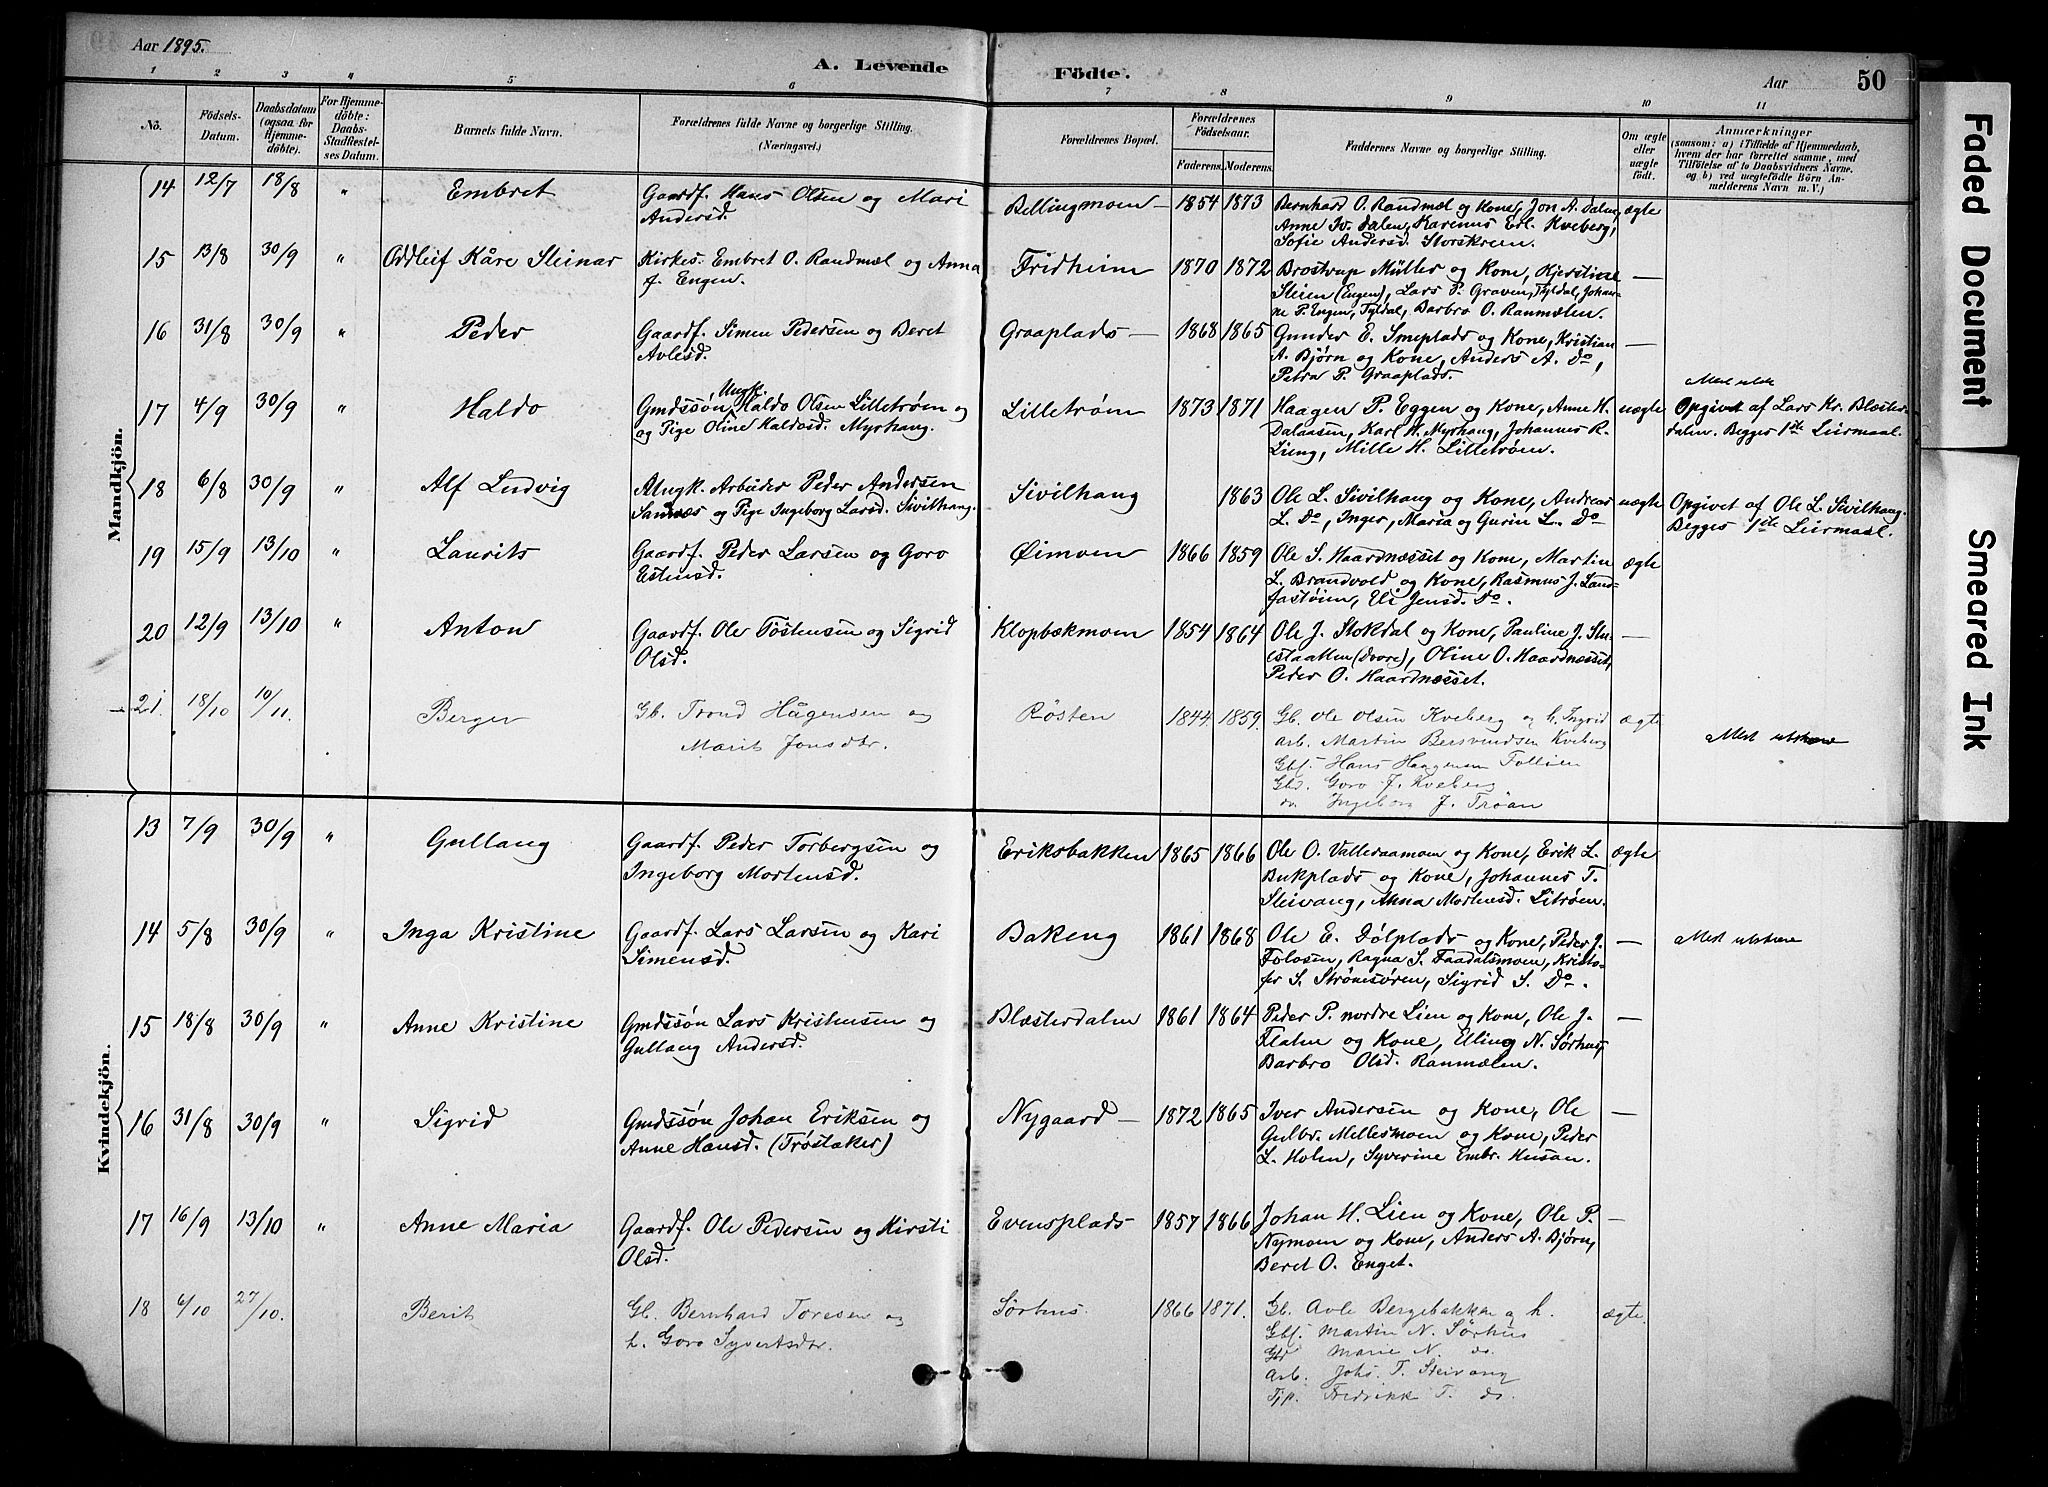 Aar 1895.
A. Levende Födte.
Aar
50
1 2 3 4 5 6 7 8 9 10 11
No.
Födsels-Datum.
Daabsdatum (ogsaa for Hjemme-döbte).
For Hjemme-döbte: Daabs-Stadfæstel-ses Datum.
Barnets fulde Navn.
Forældrenes fulde Navne og borgerlige Stilling. (Næringsvei.)
Forældrenes Bopæl.
Forældrenes Födselsaar.
Faderens. Moderens.
Faddernes Navne og borgerlige Stilling.
Om ægte eller uægte födt.
Anmærkninger
(saasom: a) i Tilfælde af Hjemmedaab, hvem der har forrettet samme, med Tilföielse af to Daabsvidners Navne, og b) ved uægtefödte Börn An-melderens Navn m. V.)
Mandkjön.
14 12/7 18/8 " Embret Gaardf. Hans Olsen og Mari Andersd. Bellingmoen 1854 1873 Bernhard O. Randmæl og Kone, Jon A. Dalen, Anne Iv. Dalen, Karenus Erl. Kveberg, Sofie Andersd. Storskreen. ægte
15 13/8 30/9 " Oddleif Kåre Steinar Kirkes. Embret O. Randmæl og Anna f. Engen. Fridheim 1870 1872 Brostrup Müller og Kone, Kjerstine Steien (Engen), Lars P. Graven, Tyldal, Johanne P. Engen, Tyldal, Barbro O. Ranmælen. —
16 31/8 30/9 " Peder Gaardf. Simen Pedersen og Beret Avlesd. Graaplads 1868 1865 Gunder E. Smeplads og Kone, Kristian A. Bjørn og Kone, Anders A. Do, Petra P. Graaplads. —
17 4/9 30/9 " Haldo Ungk. Gmdssøn Haldo Olsen Lilletrøen og og Pige Oline Haldosd. Myrhaug. Lilletrøen 1873 1871 Haagen P. Eggen og Kone, Anne H. Dalaasen, Karl H. Myrhaug, Johannes R. Lieng, Mille H. Lilletrøen. uægte Opgivet af Lars Kr. Blæsterdalen. Begges 1ste Leiermaal.
18 6/8 30/9 " Alf Ludvig Ungk. Arbeider Peder Andersen Sannæs og Pige Ingeborg Larsd. Sivilhaug. Sivilhaug 1863 Ole L. Sivilhaug og Kone, Andreas L. Do, Inger, Maria og Gurin L. Do uægte Opgivet af Ole L. Sivilhaug. Begges 1ste Leiermaal.
19 15/9 13/10 " Laurits Gaardf. Peder Larsen og Goro Estensd. Øimoen 1866 1859 Ole S. Haardnæsset og Kone, Martin L. Brandvold og Kone, Rasmus J. Landfastøien, Eli Jensd. Do. ægte
20 12/9 13/10 " Anton Gaardf. Ole Tøstensen og Sigrid Olsd. Klopbækmoen 1854 1864 Ole J. Stokdal og Kone, Pauline J. Stuestaakken (Dvore), Oline O. Haardnæsset, Peder O. Haardnæsset. —
21. 18/10 10/11. Berger Gb. Trond Hågensen og Marit Jonsdtr. Røsten 1844. 1859. Gb. Ole Olsen Kveberg og h. Ingrid arb. Martin Bersvendsen Kveberg Gbf. Hans Haagensen Folløien Gbd. Goro J. Kveberg do. Ingeborg J. Trøan ægte
Kvindekjön.
13 7/9 30/9 " Gullaug Gaardf. Peder Torbergsen og Ingeborg Mortensd. Eriksbakken 1865 1866 Ole O. Valleraamoen og Kone, Erik L. Bukplads og Kone, Johannes T. Steivang, Anna Mortensd. Litrøen. ægte
14 5/8 30/9 " Inga Kristine Gaardf. Lars Larsen og Kari Simensd. Bakeng 1861 1868 Ole E. Dølplads og Kone, Peder J. Folosen, Ragna S. Faadalsmoen, Kristofer S. Strømsøren, Sigrid S. Do. —
15 18/8 30/9 " Anne Kristine Gmdssøn Lars Kristensen og Gullaug Andersd. Blæsterdalen 1861 1864 Peder P. nordre Lien og Kone, Ole J. Flaten og Kone, Elling N. Sørhus, Barbro Olsd. Ranmælen. —
16 31/8 30/9 " Sigrid Gmdssøn Johan Eriksen og Anne Hansd. (Trøstaker) Nygaard 1872 1865 Iver Andersen og Kone, Ole Gulbr. Mellesmoen og Kone, Peder L. Holen, Syverine Embr. Husan. —
17 16/9 13/10 " Anne Maria Gaardf. Ole Pedersen og Kirsti Olsd. Evensplads 1857 1866 Johan H. Lien og Kone, Ole P. Nymoen og Kone, Anders A. Bjørn, Beret O. Enget. —
18 6/10 27/10. Berit Gb. Bernhard Toresen og h. Goro Syvertsdtr. Sørhus. 1866 1871. Gb. Avle Bergebakken og h. Gbf. Martin N. Sørhus Gbd Marie N. do. arb. Johs. T. Steivang Tjp. Fredrikk T. do. ægte.
Faded Document
Smeared Ink